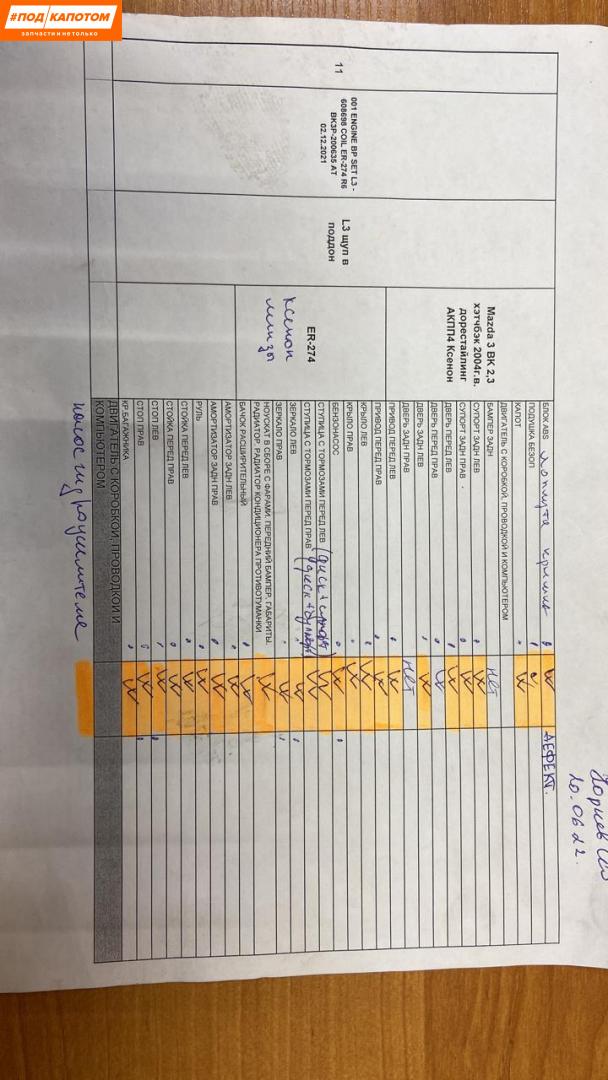 #ПОД КАПОТОМ
запчасти и не только
11
001 ENGINE BP SET L3 -
608698 COIL ER-274 R6
BK3P-200635 AT
02.12.2021
L3 щуп в
поддон
Mazda 3 BK 2,3
хэтчбэк 2004г.в.
дорестайлинг
АКПП4 Ксенон
ER-274
ксенон
линзы
БЛОК ABS лопнута крышка
ДЕФЕКТ.
ПОДУШКА БЕЗОП
КАПОТ
ДВИГАТЕЛЬ С КОРОБКОЙ, ПРОВОДКОЙ И КОМПЬЮТЕРОМ
БАМПЕР ЗАДН нет
СУПОРТ ЗАДН ЛЕВ
СУПОРТ ЗАДН ПРАВ
ДВЕРЬ ПЕРЕД ЛЕВ
ДВЕРЬ ПЕРЕД ПРАВ
ДВЕРЬ ЗАДН ЛЕВ
ДВЕРЬ ЗАДН ПРАВ нет
ПРИВОД ПЕРЕД ЛЕВ
ПРИВОД ПЕРЕД ПРАВ
КРЫЛО ЛЕВ
КРЫЛО ПРАВ
БЕНЗОНАСОС
СТУПИЦА С ТОРМОЗАМИ ПЕРЕД ЛЕВ (диск+суппорт)
СТУПИЦА С ТОРМОЗАМИ ПЕРЕД ПРАВ (диск+суппорт)
ЗЕРКАЛО ЛЕВ
ЗЕРКАЛО ПРАВ
НОУСКАТ В СБОРЕ С ФАРАМИ, ПЕРЕДНИЙ БАМПЕР, ГАБАРИТЫ,
РАДИАТОР, РАДИАТОР КОНДИЦИОНЕРА ПРОТИВОТУМАНКИ
БАЧОК РАСШИРИТЕЛЬНЫЙ
АМОРТИЗАТОР ЗАДН ЛЕВ
АМОРТИЗАТОР ЗАДН ПРАВ
РУЛЬ
СТОЙКА ПЕРЕД ЛЕВ
СТОЙКА ПЕРЕД ПРАВ
СТОП ЛЕВ
СТОП ПРАВ
КР.БАГАЖНИКА
ДВИГАТЕЛЬ С КОРОБКОЙ, ПРОВОДКОЙ И
КОМПЬЮТЕРОМ
насос гидроусилителя
20.06.22.